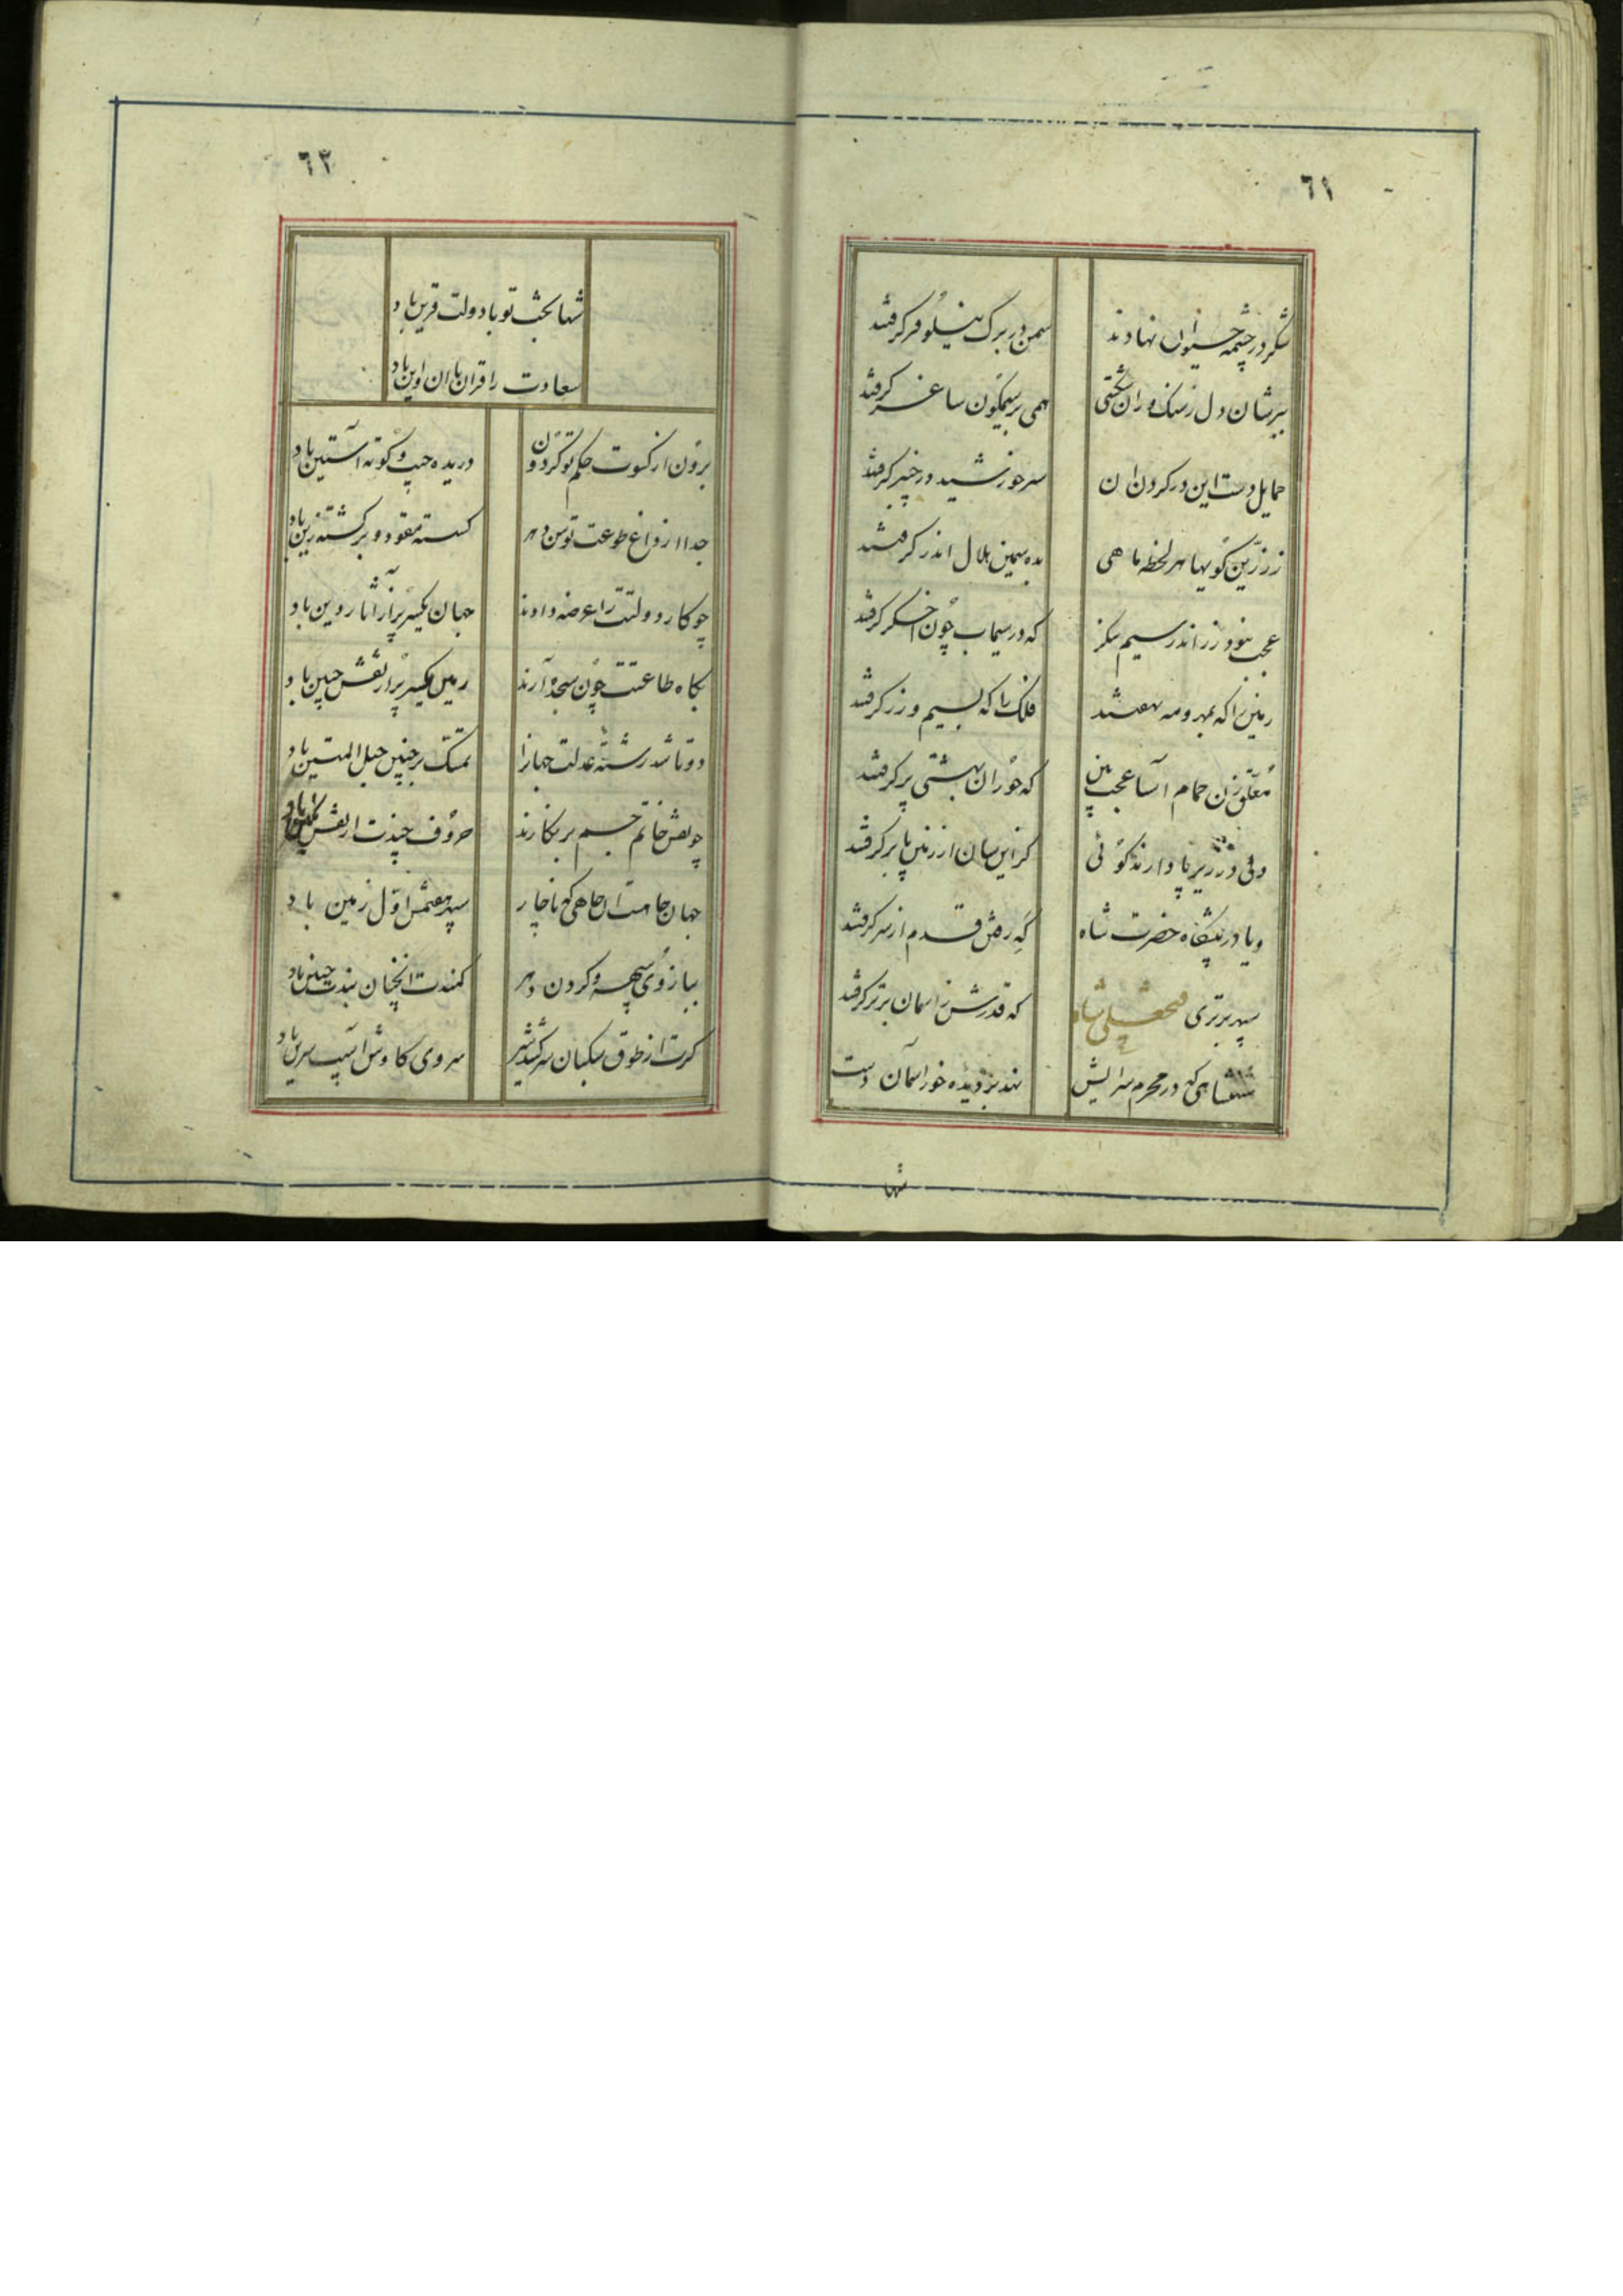 ٦١
شکر در چشمه حیوان نهادند
سمن در برک نیلوفر کرفتند
ببرشان دل ز سنک و ران
همی بر سیمکون ساغر کرفتند
حمایل دست این در کردن ان
سر خورشید در چنبر کرفتند
ز زرّین کویها هر لحظه ماهی
بده سیمین هلال اندر کرفتند
عجب نبود زر اندر سیم
که در سیماب چون اخکر کرفتند
زمین را که بمهر و مه
فلک را که بسیم و زر کرفتند
معلّق زن حمام اسا عجب بین
که حوران بهشتی پر کرفتند
دلی در زیر پا دارند کوئی
کز این سان از زمین پا بر کرفتند
و یا در پیشکاه حضرت شاه
که رقص قدم از سر کرفتند
سپهر برتری فتحعلی شاه
که قدرش ز اسمان برتر کرفتند
شهنشاهی که در محرم سرایش
نهد بر دیده خور اسمان دست
شها
٦٢
شها بخت تو با دولت قرین باد
سعادت را قران با ان و این باد
برون از کسوت حکم تو کردون
دریده جیب و کوته آستین باد
جدا از داغ طوعت توسن دهر
کسسته مقود و برکشته زین باد
چو کار دولتت را عرضه دادند
جهان یکسر پر از آثار وین باد
بکاه طاعتت چون سجده آرند
زمین یکسر پر از نقش جبین باد
دو تا شد رشتهٔ عدلت جهانرا
تمسّک بر چنین حبل المتین باد
چو نقش خاتم جم بر نکارند
حروف چندت از نقش نکین باد
جهان جاهت ان جاهی که ناچار
سپهر هفتمش اوّل زمین باد
ببازوی سپهر و کردن دهر
کمندت انچنان بندت چنین باد
کرت از طوق سکبان سر کشد شیر
سروی کاوش اسیب سرین باد